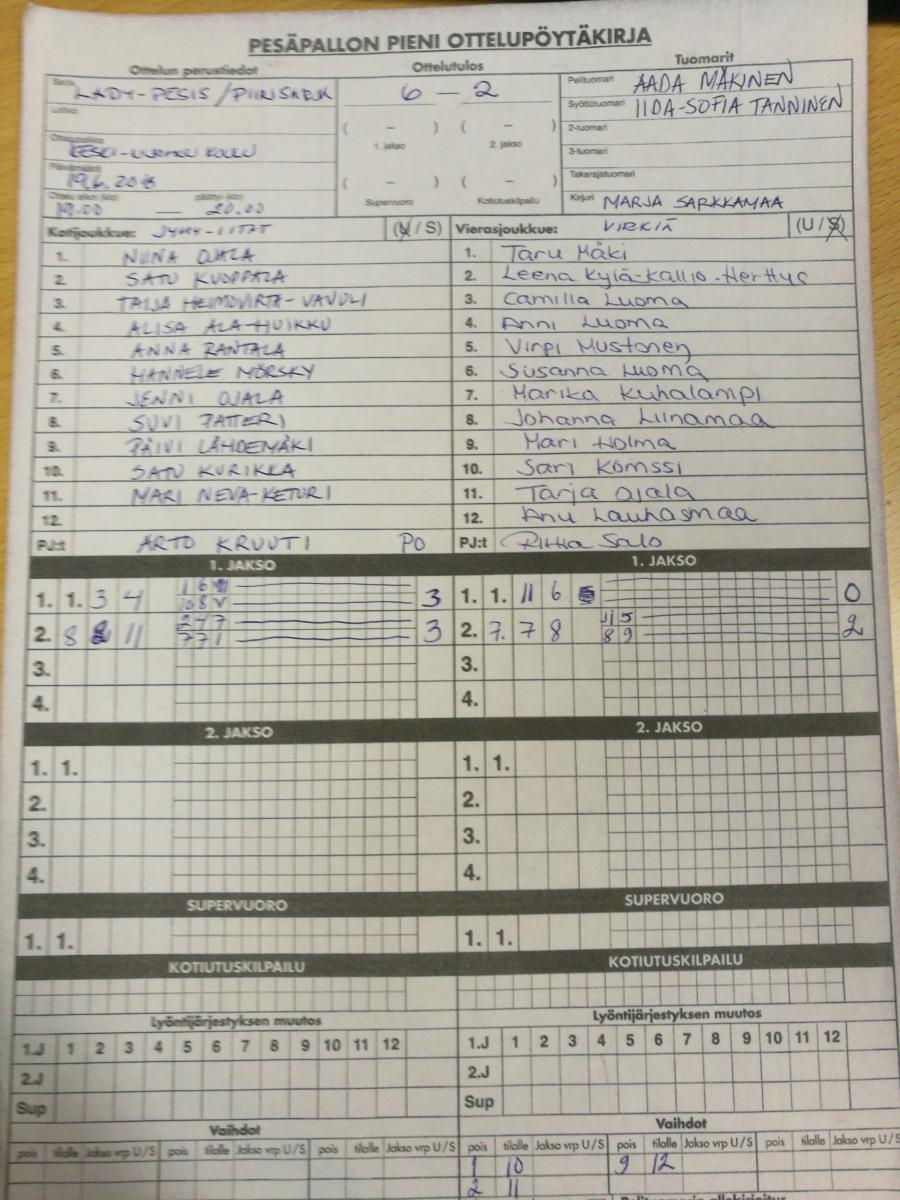 PESÄPALLON PIENI OTTELUPÖYTÄKIRJA
Ottelun perustiedot Ottelutulos Tuomarit
Sarja LADY-PESIS / 6 — 2 Pelituomari AADA MÄKINEN
Lohko Syöttötuomari IIDA-SOFIA TANNINEN
( – ) ( – ) 2-tuomari
Ottelupaikka KOULU 1. jakso 2. jakso 3-tuomari
Päivämäärä 19.6.2018 ( – ) ( – ) Takarajatuomari
Ottelu alkoi (klo) päättyi (klo) Supervuoro Kotiutuskilpailu Kirjuri MARJA SARKKAMAA
19.00 — 20.00
Kotijoukkue: JYMY-LIITÄT (U / S) Vierasjoukkue: VIRKIÄ (U / S)
1. NIINA OJALA 1. Taru Mäki
2. SATU KUOPPALA 2. Leena Kylä-Kallio-Herttys
3. TAIJA HEIMOVIRTA-VAVULI 3. Camilla Luoma
4. ALISA ALA-HUIKKU 4. Anni Luoma
5. ANNA RANTALA 5. Virpi Mustonen
6. HANNELE MÖRSKY 6. Susanna Luoma
7. JENNI OJALA 7. Marika Kuhalampi
8. SUVI PATTERI 8. Johanna Liinamaa
9. PÄIVI LÄHDEMÄKI 9. Mari Holma
10. SATU KURIKKA 10. Sari Komssi
11. MARI NEVA-KETURI 11. Tarja Ojala
12. 12. Anu Lauhasmaa
PJ:t ARTO KRUUTI PO PJ:t Riitta Salo
1. JAKSO 1. JAKSO
1. 1. 3 4 3 1. 1. 11 6 0
2. 8 11 247 771 3 2. 7. 7 8 115 89 2
3. 3.
4. 4.
2. JAKSO 2. JAKSO
1. 1. 1. 1.
2. 2.
3. 3.
4. 4.
SUPERVUORO SUPERVUORO
1. 1. 1. 1.
KOTIUTUSKILPAILU KOTIUTUSKILPAILU
Lyöntijärjestyksen muutos Lyöntijärjestyksen muutos
1.J 1 2 3 4 5 6 7 8 9 10 11 12 1.J 1 2 3 4 5 6 7 8 9 10 11 12
2.J 2.J
Sup Sup
Vaihdot Vaihdot
pois tilalle Jakso vrp U / S pois tilalle Jakso vrp U / S pois tilalle Jakso vrp U / S pois tilalle Jakso vrp U / S pois tilalle Jakso vrp U / S pois tilalle
1 10 9 12
2 11